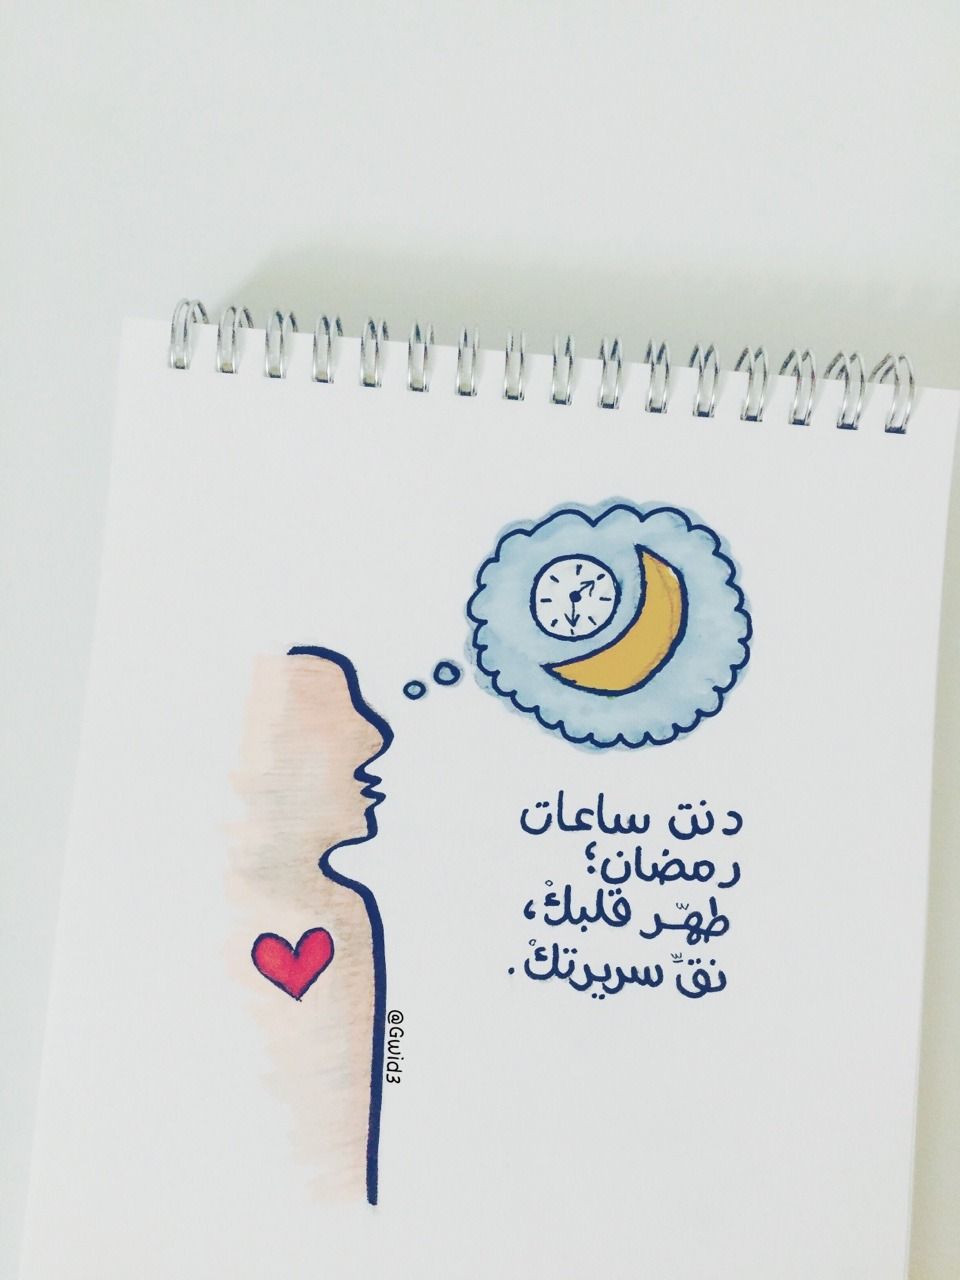 دنت ساعات
رمضان؛
طهّر قلبكْ،
نقِّ سريرتكْ.
@Gwid3